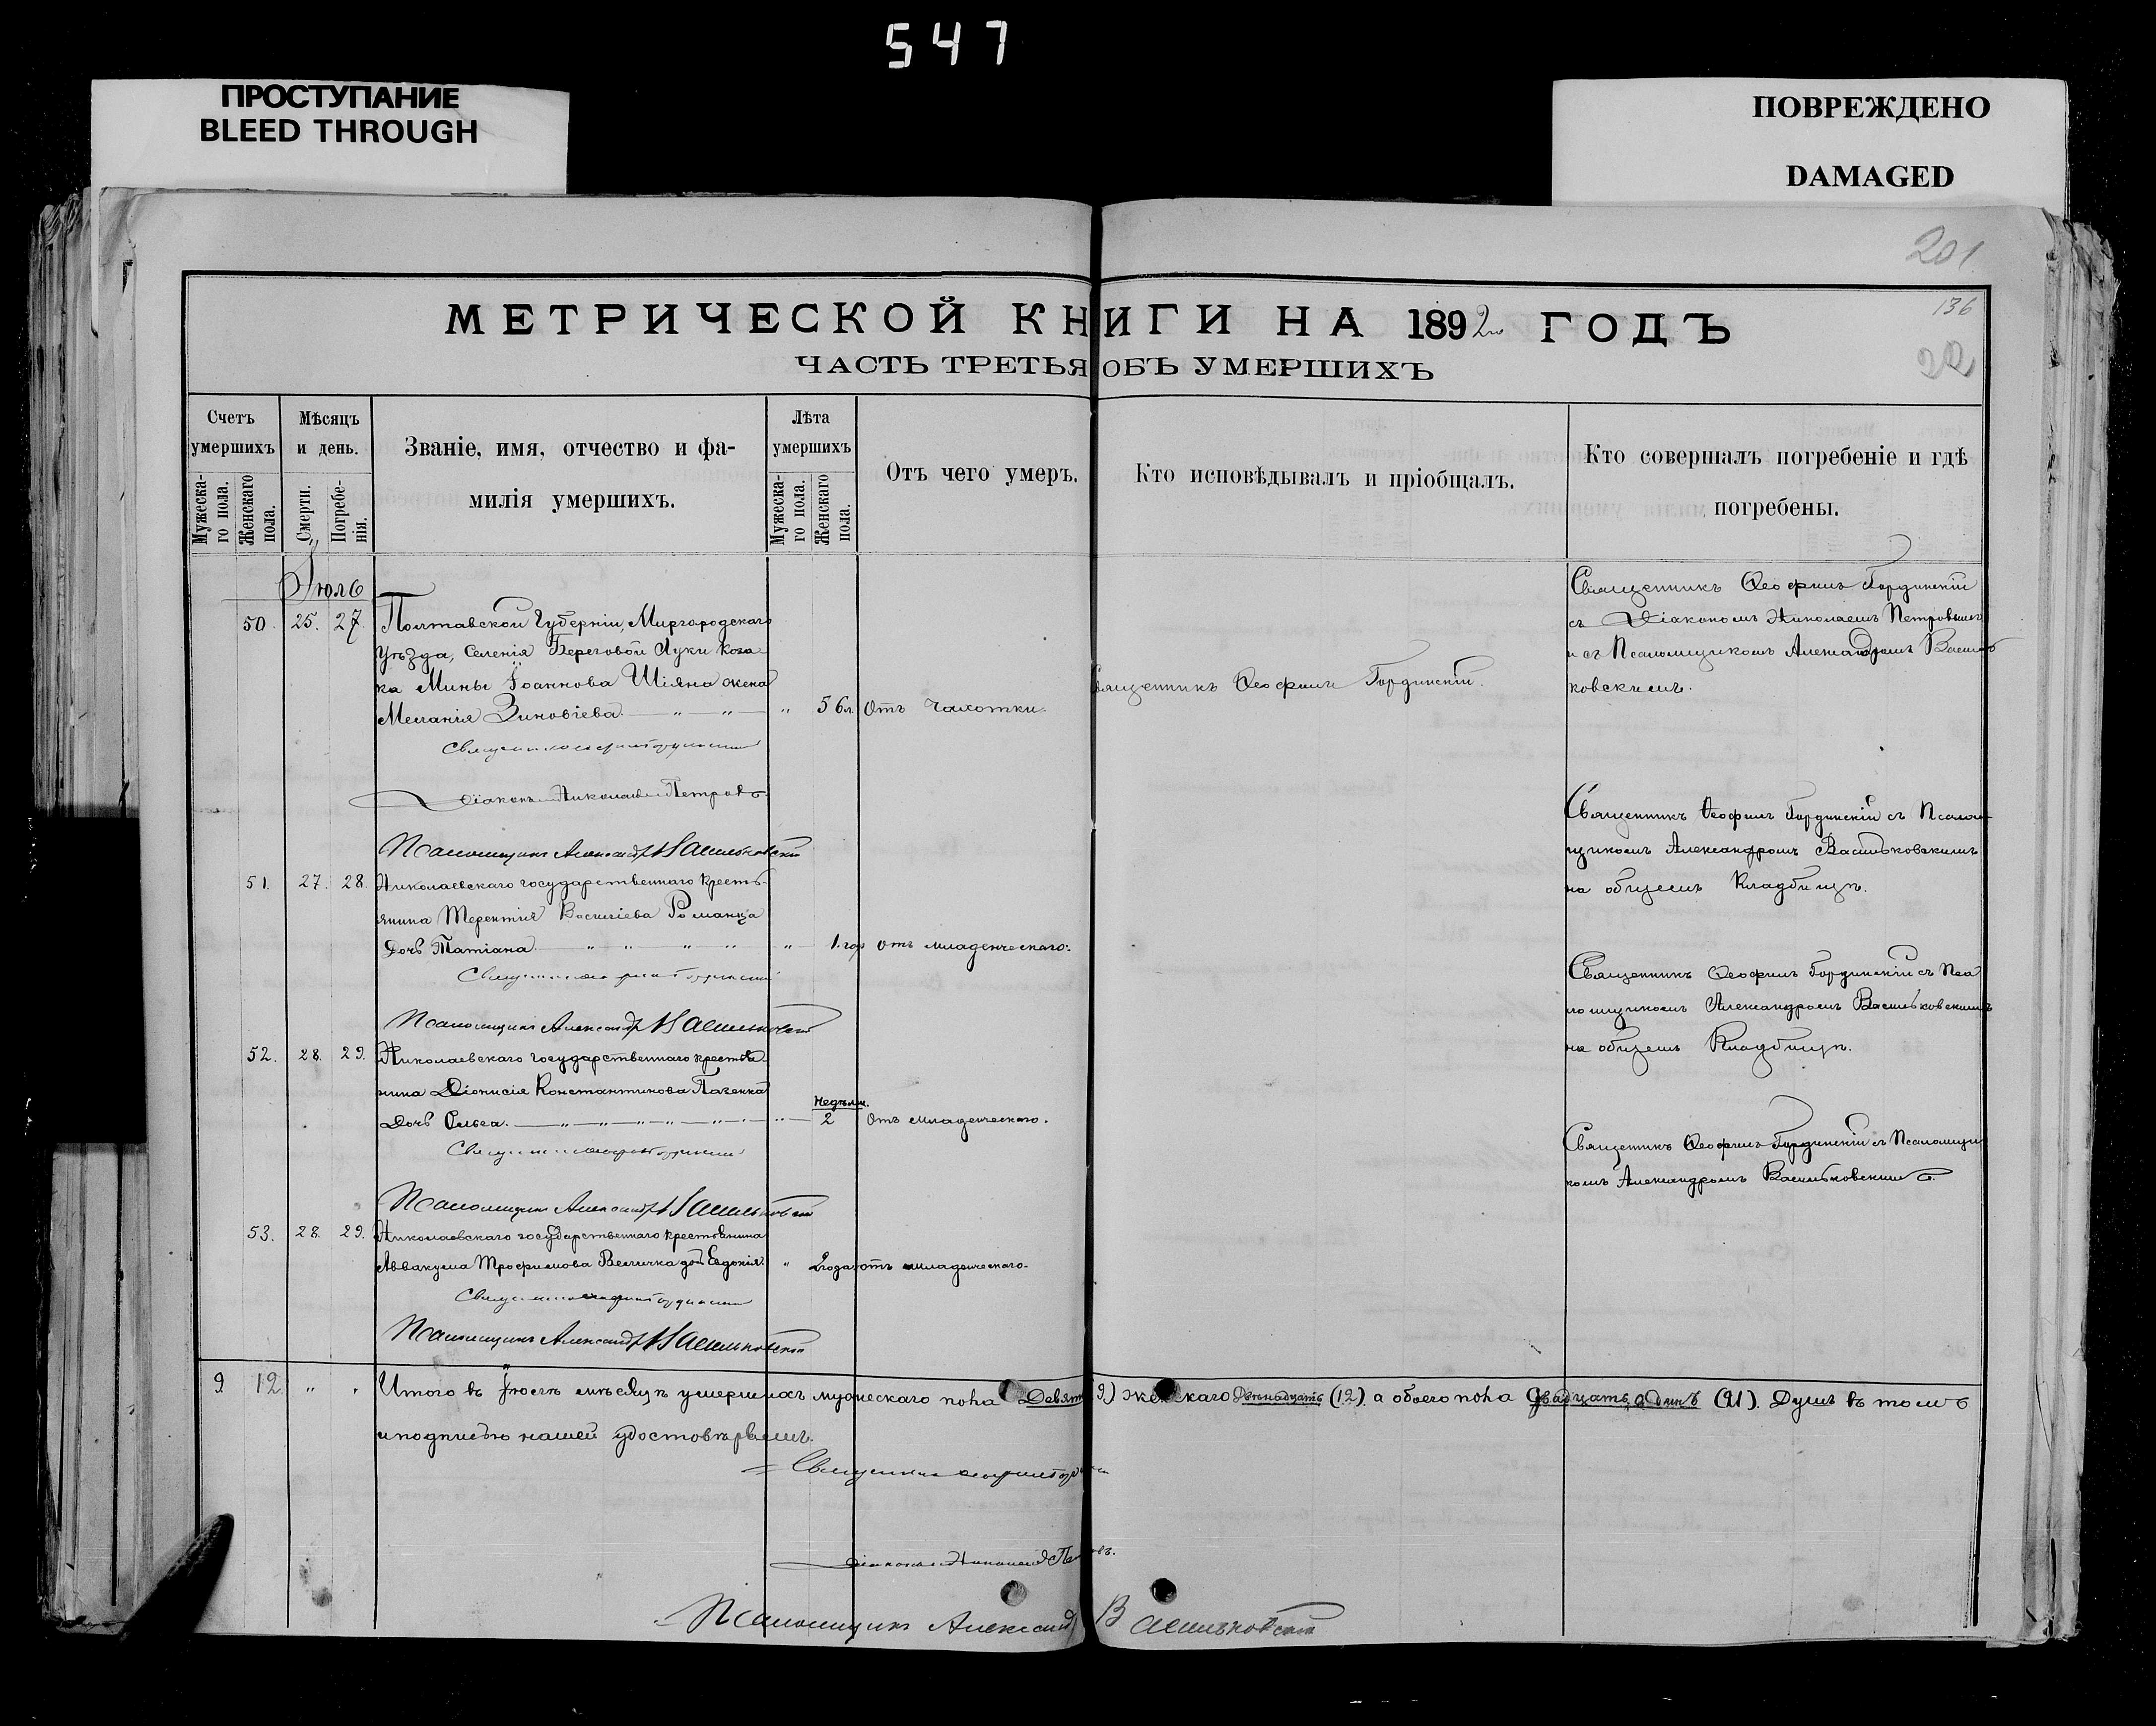 547
ПРОСТУПАНИЕ
BLEED THROUGH
ПОВРЕЖДЕНО
DAMAGED
201
136
22
МЕТРИЧЕСКОЙ КНИГИ НА 1892 ГОДЪ
ЧАСТЬ ТРЕТЬЯ ОБЪ УМЕРШИХЪ
Счетъ умершихъ
Мужеска-го пола.
Женскаго пола.
Мѣсяцъ и день.
Смерти.
Погребе-нія.
Званіе, имя, отчество и фа-
милія умершихъ.
Лѣта умершихъ
Мужеска-го пола.
Женскаго пола.
Отъ чего умеръ.
Кто исповѣдывалъ и пріобщалъ.
Кто совершалъ погребеніе и гдѣ
погребены.
Іюль
50. 25. 27. Полтавской Губерніи, Миргородскаго
Уѣзда, Селенія Береговой Луки Коза-
ка Мины Іоаннова Шіяна жена
Меланія Зиновіева " 56 л. Отъ Чахотки.
Священникъ Ѳеофилъ Гординскій.
Священникъ Ѳеофилъ Гординскій
съ Діакономъ Николаемъ Петровымъ
и съ Псаломщикомъ Александромъ Василь
ковскимъ.
Священникъ Ѳеофилъ Гординскій
Діаконъ Николай Петровъ
Псаломщикъ Александръ Васильковскій
51. 27. 28. Николаевскаго государственнаго кресть-
янина Терентія Василіева Романца
Дочь Татіана " 1. год Отъ младенческаго.
Священникъ Ѳеофилъ Гординскій съ Псалом-
щикомъ Александромъ Васильковскимъ
на общемъ Кладбищѣ.
Священникъ Ѳеофилъ Гординскій
Псаломщикъ Александръ Васильковскій
52. 28. 29. Николаевскаго государственнаго крестья-
нина Діонисія Константинова
Дочь Ольга. Недѣли. 2 Отъ младенческаго.
Священникъ Ѳеофилъ Гординскій съ Пса
ломщикомъ Александромъ Васильковскимъ
на общемъ Кладбищѣ.
Священникъ Ѳеофилъ Гординскій
Псаломщикъ Александръ Васильковскій
53. 28. 29. Николаевскаго государственнаго крестьянина
Аввакума Трофимова Величка дочь Евдокія. " 2 года отъ младенческаго.
Священникъ Ѳеофилъ Гординскій съ Псаломщи
комъ Александромъ Васильковскимъ.
Священникъ Ѳеофилъ Гординскій
Псаломщикъ Александръ Васильковскій
9 12 " " Итого въ Іюлѣ мѣсяцѣ умершихъ мужескаго пола Девять (9) женскаго Двѣнадцать (12) а обоего пола двадцать одинъ (21). Душъ въ томъ
и подписью нашей удостовѣряемъ.
Священникъ Ѳеофилъ Гординскій
Діаконъ Николай Петровъ.
Псаломщикъ Александръ Васильковскій